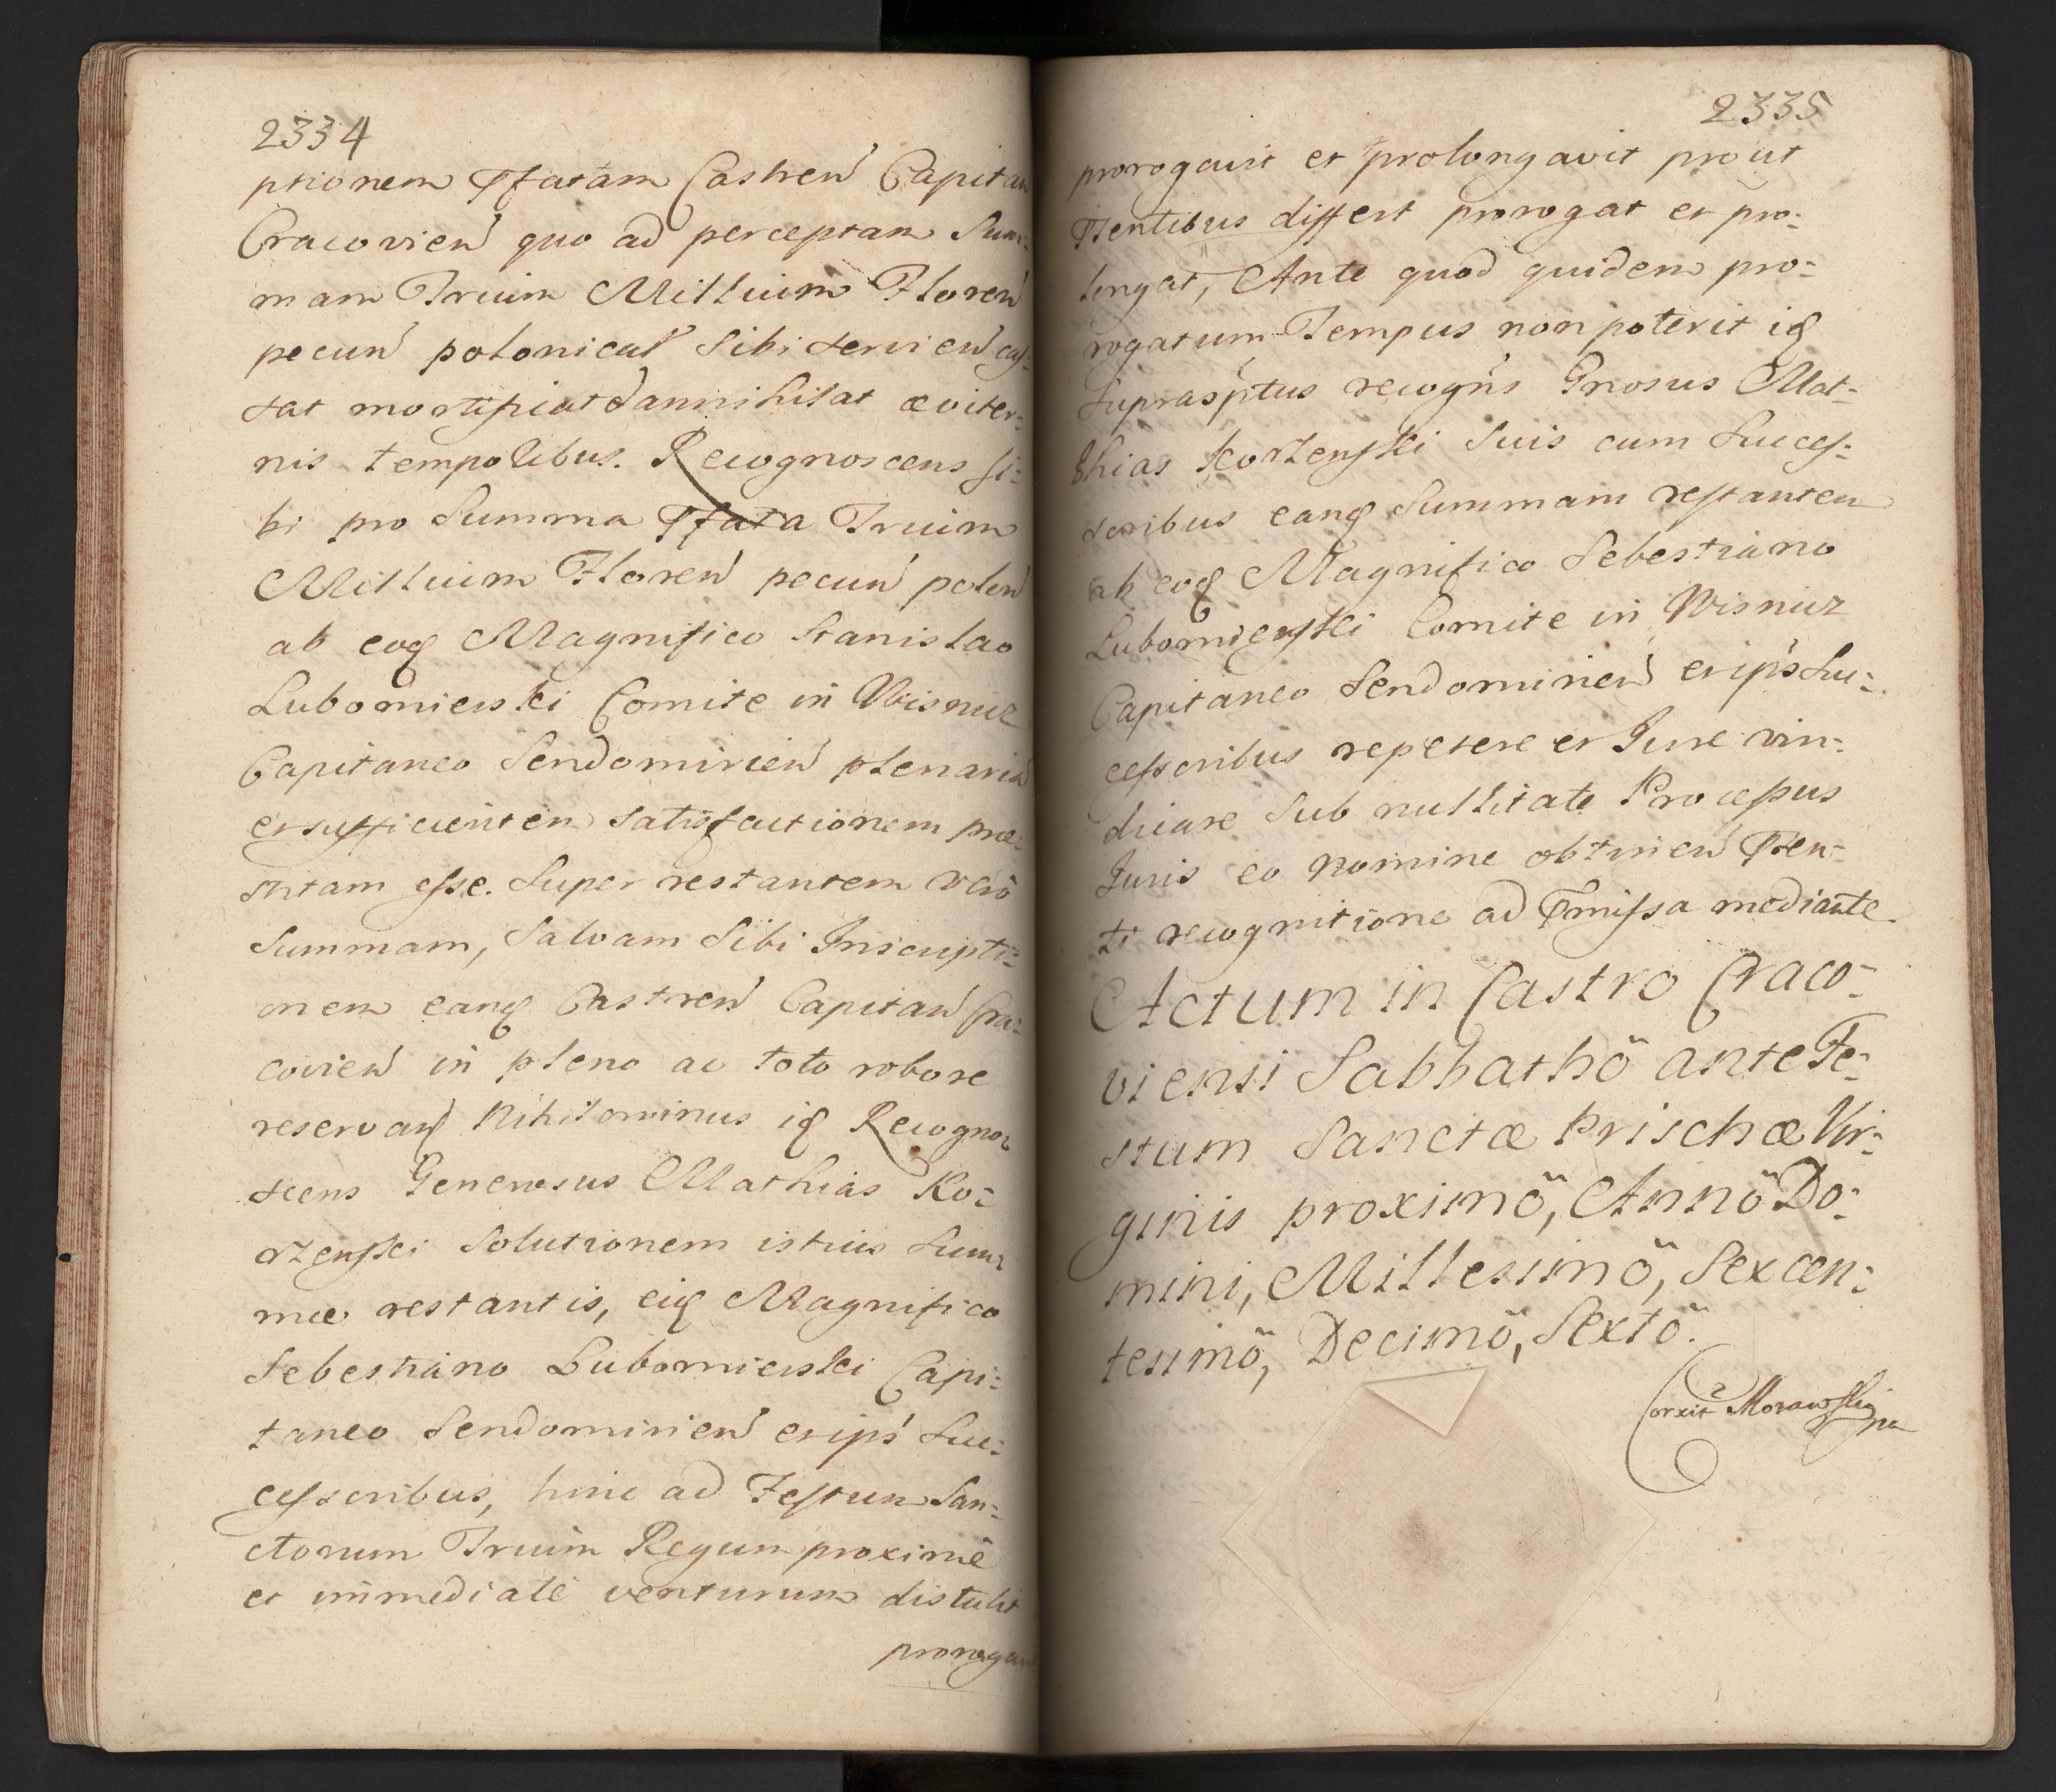 2334
ptionem Pfatam Castren Capitan
Cracovien quo ad perceptam Sum:
mam Trium Millium Floren
pecun polonical Sibi servien cas:
sat mortificat & annihilat æviter:
nis temporibus. Recognoscens si:
bi pro Summa Pfata Trium
Millium Floren pecun polon
ab eoq Magnifico Stanislao
Lubomierski Comite in Wisnicz
Capitaneo Sendomirien plenaria
et sufficientem satisfactionem præ:
stitam esse. Super restantem vero
Summam, Salvam Sibi Inscripti:
onem eanq Castren Capitan Cra:
covien in pleno ac toto robore
reservan Nihilominus iq Recogno:
scens Generosus Mathias Ko:
rzenski Solutionem istius Sum:
mæ restantis, eiq Magnifico
Sebestiano Lubomierski Capi:
taneo Sendomirien eripś Suc:
cessoribus, hinc ad Festum San:
ctorum Trium Regum proximè
et immediatè venturum distulit
prorogavi
2335
prorogavit et prolongavit prout
Psentibus differt prorogat et pro:
longat, Ante quod quidem pro:
rogatum Tempus non poterit iq
suprasptus recogns Gnosus Mat:
thias Korzenski Suis cum Succes:
soribus eanq Summam restantem
ab eoq Magnifico Sebestiano
Lubomierski Comite in Wisnicz
Capitaneo Sendomirien eripś Suc:
cessoribus repetere et Jure vin:
dicare Sub nullitate Processus
Juris eo nomine obtinen Psen:
ti recognitione ad Pmissa mediante.
Actum in Castro Craco:
viensi Sabbathō ante Fe:
stum Sanctæ Prischæ Vir:
ginis proximō, Annō Do:
mini, Millesimō, Sexcen:
tesimō, Decimō, Sextō.
Corxit Morawski
mp